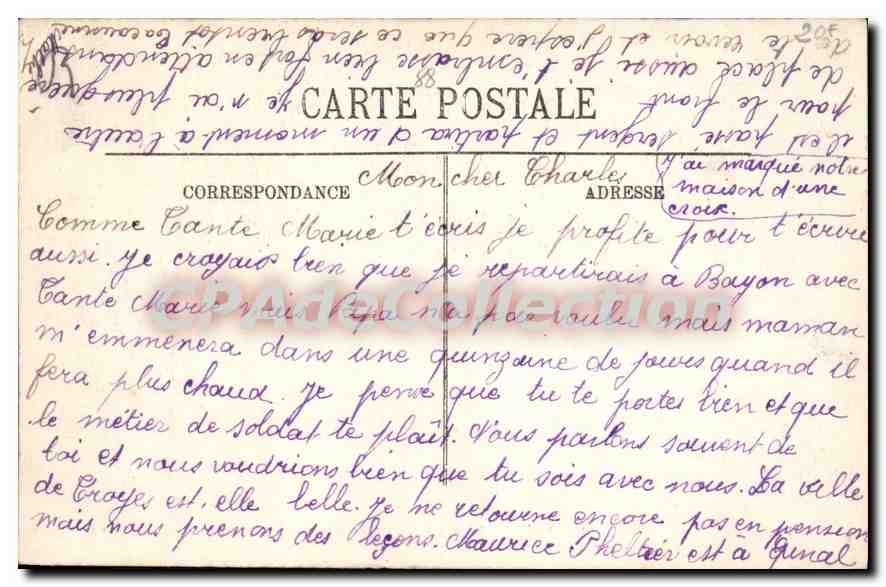 CARTE POSTALE
CORRESPONDANCE
ADRESSE
J'ai marqué notre
maison d'une
croix.
Mon cher Charles
Comme Tante Marie t'écris je profite pour t'écrire
aussi. Je croyais bien que je repartirais à Bayon avec
Tante Marie mais Papa n'a pas voulu mais maman
m'emmenera dans une quinzaine de jours quand il
fera plus chaud. Je pense que tu te portes bien et que
le métier de soldat te plaît. Nous parlons souvent de
toi et nous voudrions bien que tu sois avec nous. La ville
de Troyes est, elle belle. Je ne retourne encore pas en pension
mais nous prenons des leçons. Maurice Pheltier est à Epinal
il est passé sergent et partira d'un moment à l'autre
pour le front je n'ai plus guère
de place aussi je t'embrasse bien fort en attendant
de te revoir et j'espère que ce sera bientôt
88
20F
CPAdeCollection